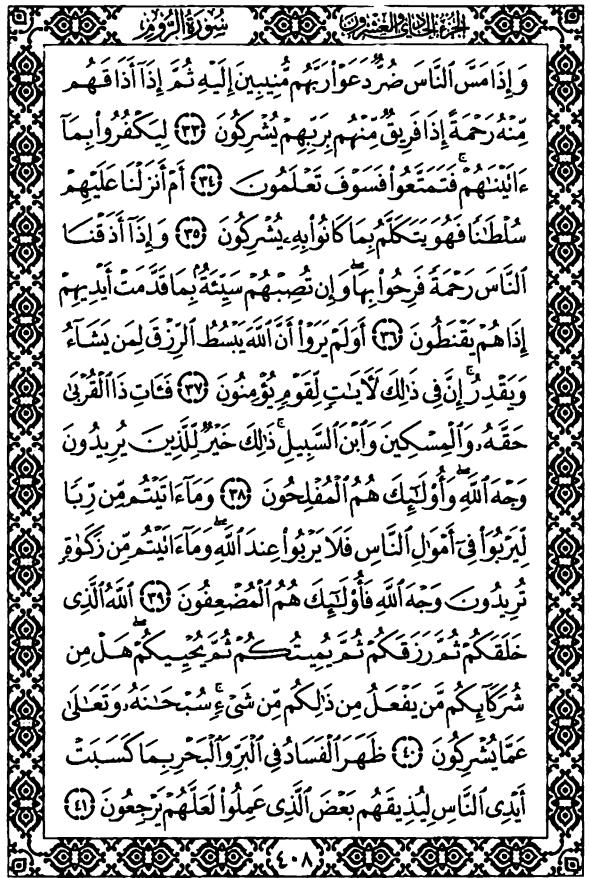 سُورَةُ الرُّومِ الجزء الحادي والعشرون
وَإِذَا مَسَّ ٱلنَّاسَ ضُرٌّ دَعَوْا۟ رَبَّهُم مُّنِيبِينَ إِلَيْهِ ثُمَّ إِذَآ أَذَاقَهُم
مِّنْهُ رَحْمَةً إِذَا فَرِيقٌ مِّنْهُم بِرَبِّهِمْ يُشْرِكُونَ ٣٣ لِيَكْفُرُوا۟ بِمَآ
ءَاتَيْنَٰهُمْ ۚ فَتَمَتَّعُوا۟ فَسَوْفَ تَعْلَمُونَ ٣٤ أَمْ أَنزَلْنَا عَلَيْهِمْ
سُلْطَٰنًا فَهُوَ يَتَكَلَّمُ بِمَا كَانُوا۟ بِهِۦ يُشْرِكُونَ ٣٥ وَإِذَآ أَذَقْنَا
ٱلنَّاسَ رَحْمَةً فَرِحُوا۟ بِهَا ۖ وَإِن تُصِبْهُمْ سَيِّئَةٌۢ بِمَا قَدَّمَتْ أَيْدِيهِمْ
إِذَا هُمْ يَقْنَطُونَ ٣٦ أَوَلَمْ يَرَوْا۟ أَنَّ ٱللَّهَ يَبْسُطُ ٱلرِّزْقَ لِمَن يَشَآءُ
وَيَقْدِرُ ۚ إِنَّ فِى ذَٰلِكَ لَءَايَٰتٍ لِّقَوْمٍ يُؤْمِنُونَ ٣٧ فَـَٔاتِ ذَا ٱلْقُرْبَىٰ
حَقَّهُۥ وَٱلْمِسْكِينَ وَٱبْنَ ٱلسَّبِيلِ ۚ ذَٰلِكَ خَيْرٌ لِّلَّذِينَ يُرِيدُونَ
وَجْهَ ٱللَّهِ ۖ وَأُو۟لَٰٓئِكَ هُمُ ٱلْمُفْلِحُونَ ٣٨ وَمَآ ءَاتَيْتُم مِّن رِّبًا
لِّيَرْبُوَا۟ فِىٓ أَمْوَٰلِ ٱلنَّاسِ فَلَا يَرْبُوا۟ عِندَ ٱللَّهِ ۖ وَمَآ ءَاتَيْتُم مِّن زَكَوٰةٍ
تُرِيدُونَ وَجْهَ ٱللَّهِ فَأُو۟لَٰٓئِكَ هُمُ ٱلْمُضْعِفُونَ ٣٩ ٱللَّهُ ٱلَّذِى
خَلَقَكُمْ ثُمَّ رَزَقَكُمْ ثُمَّ يُمِيتُكُمْ ثُمَّ يُحْيِيكُمْ ۖ هَلْ مِن
شُرَكَآئِكُم مَّن يَفْعَلُ مِن ذَٰلِكُم مِّن شَىْءٍ ۚ سُبْحَٰنَهُۥ وَتَعَٰلَىٰ
عَمَّا يُشْرِكُونَ ٤٠ ظَهَرَ ٱلْفَسَادُ فِى ٱلْبَرِّ وَٱلْبَحْرِ بِمَا كَسَبَتْ
أَيْدِى ٱلنَّاسِ لِيُذِيقَهُم بَعْضَ ٱلَّذِى عَمِلُوا۟ لَعَلَّهُمْ يَرْجِعُونَ ٤١
٤٠٨